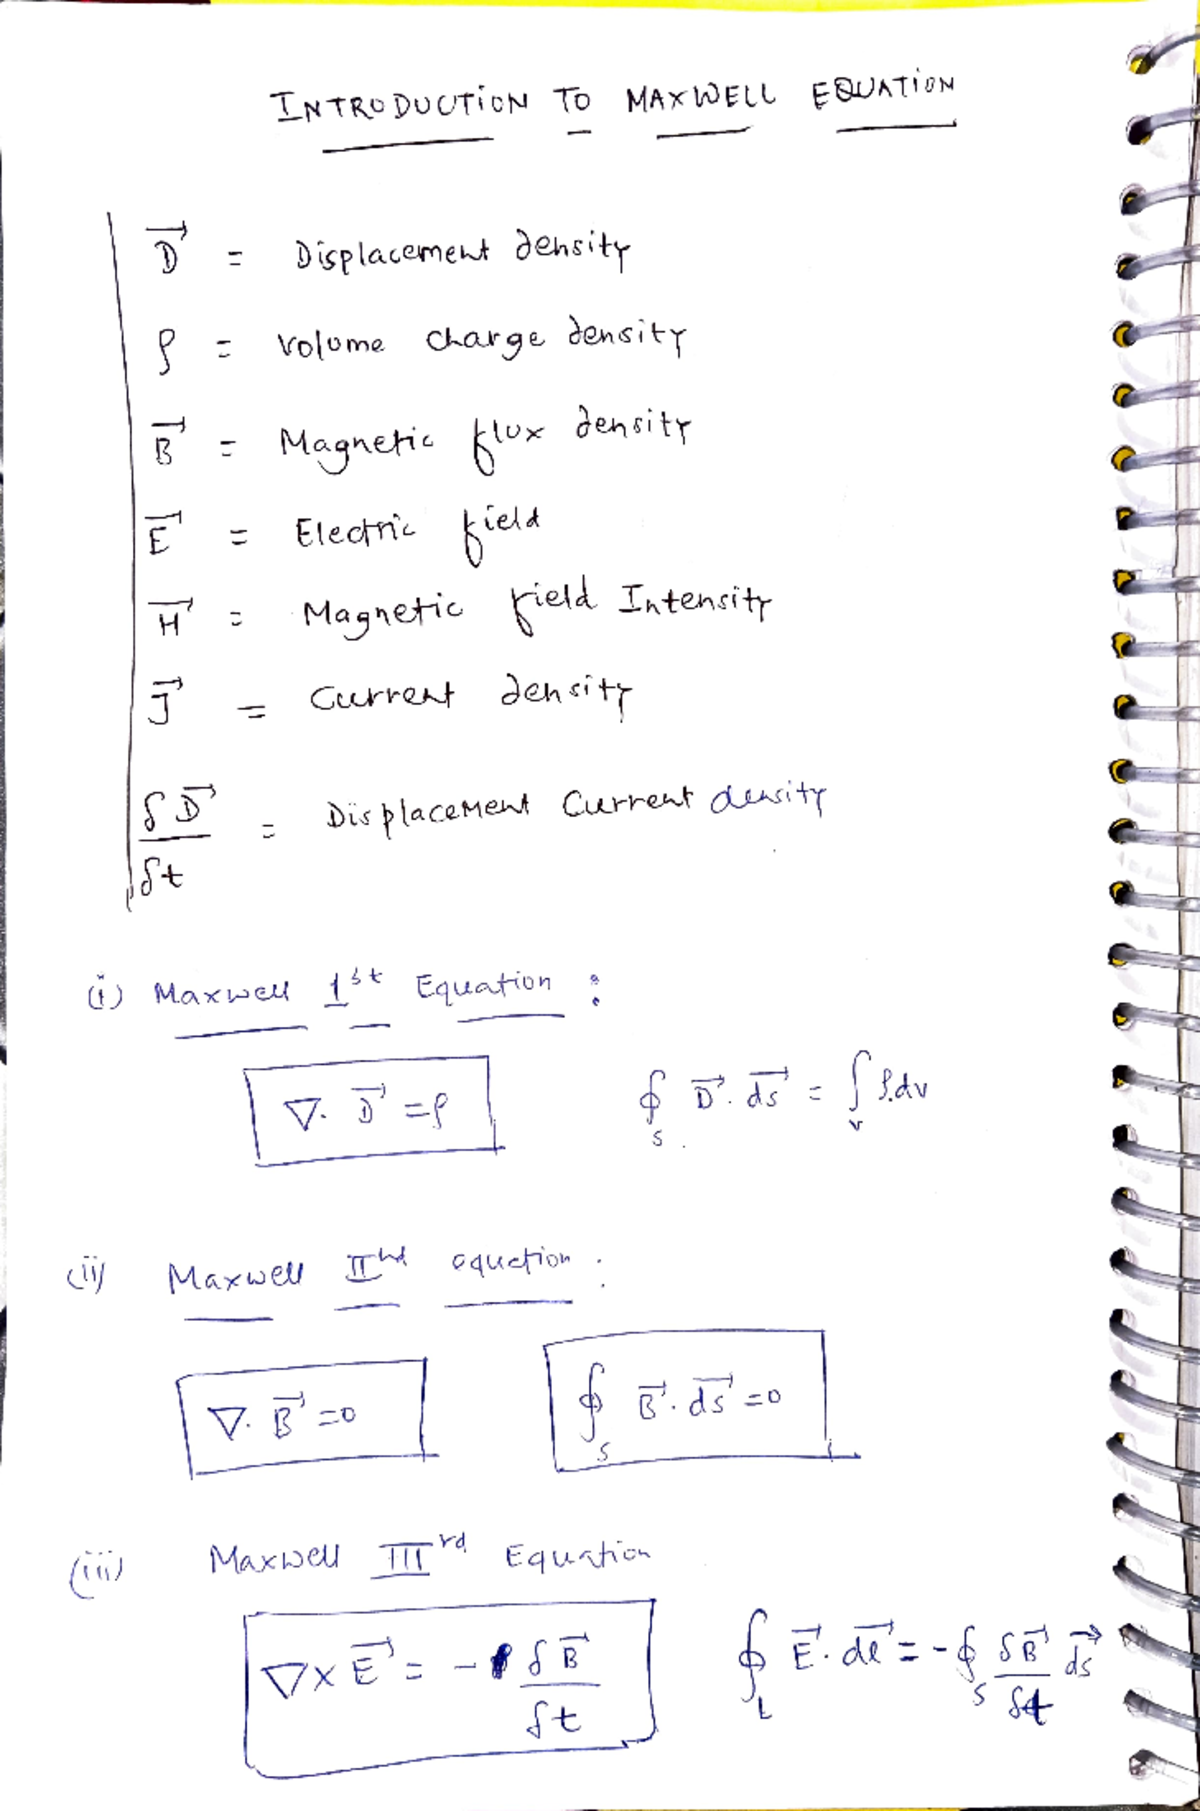 INTRODUCTION TO MAXWELL EQUATION
D⃗ = Displacement density
ρ = volume charge density
B⃗ = Magnetic flux density
E⃗ = Electric field
H⃗ = Magnetic field Intensity
J⃗ = Current density
δD⃗/δt = Displacement Current density
(i) Maxwell 1st Equation :
∇. D⃗ = ρ ∮s D⃗. ds⃗ = ∫v ρ.dv
(ii) Maxwell IInd equetion :
∇. B⃗ = 0 ∮s B⃗. ds⃗ = 0
(iii) Maxwell IIIrd Equation
∇ x E⃗ = - δB⃗/δt ∮L E⃗. dl⃗ = - ∮s δB⃗/δt ds⃗